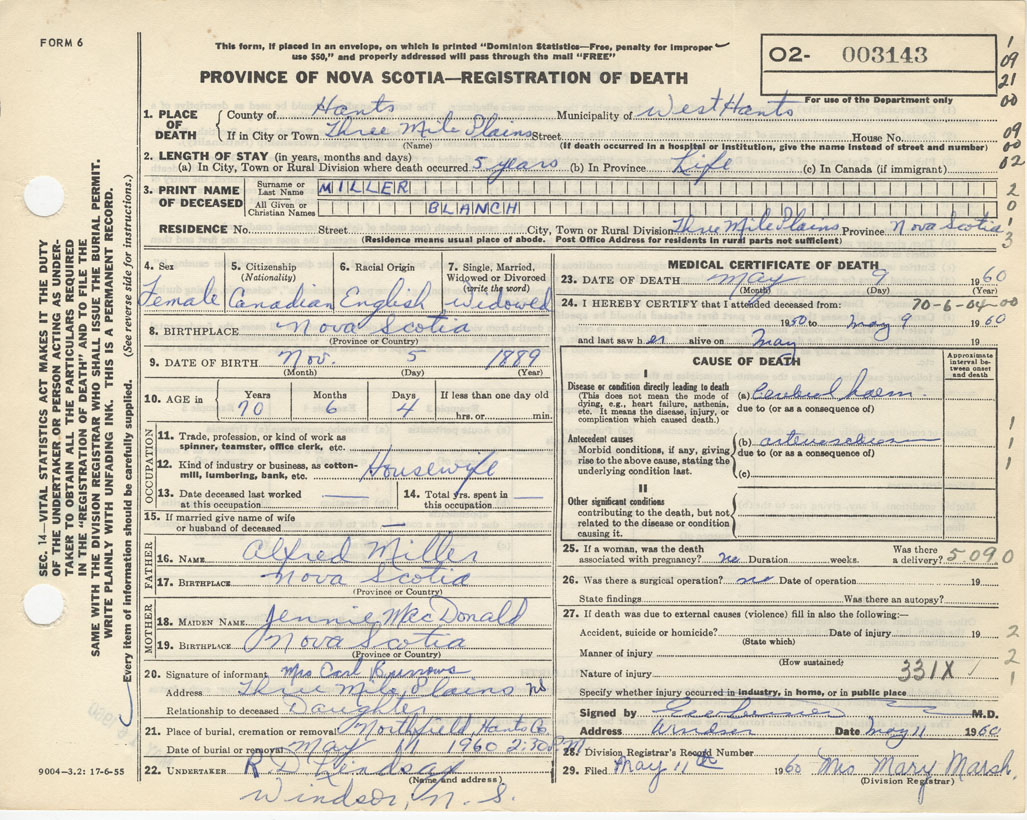 FORM 6
This form, if placed in an envelope, on which is printed "Dominion Statistics—Free, penalty for improper
use $50," and properly addressed will pass through the mail "FREE"
PROVINCE OF NOVA SCOTIA—REGISTRATION OF DEATH
02- 003143
For use of the Department only
1
09
21
00
09
00
02
2
0
1
3
1. PLACE OF DEATH
County of Hants Municipality of West Hants
If in City or Town Three Mile Plains Street House No.
(Name) (If death occurred in a hospital or institution, give the name instead of street and number)
2. LENGTH OF STAY (in years, months and days)
(a) In City, Town or Rural Division where death occurred 5 years (b) In Province Life (c) In Canada (if immigrant)
3. PRINT NAME OF DECEASED
Surname or Last Name MILLER
All Given or Christian Names BLANCH
RESIDENCE No. Street City, Town or Rural Division Three Mile Plains Province Nova Scotia
(Residence means usual place of abode. Post Office Address for residents in rural parts not sufficient)
4. Sex
Female
5. Citizenship
(Nationality)
Canadian
6. Racial Origin
English
7. Single, Married,
Widowed or Divorced
(write the word)
Widowed
8. BIRTHPLACE Nova Scotia
(Province or Country)
9. DATE OF BIRTH Nov. 5 1889
(Month) (Day) (Year)
10. AGE in Years Months Days If less than one day old
70 6 4 hrs. or min.
OCCUPATION
11. Trade, profession, or kind of work as
spinner, teamster, office clerk, etc.
12. Kind of industry or business, as cotton-
mill, lumbering, bank, etc. Housewife
13. Date deceased last worked
at this occupation —
14. Total yrs. spent in
this occupation —
15. If married give name of wife
or husband of deceased —
FATHER
16. NAME Alfred Miller
17. BIRTHPLACE Nova Scotia
(Province or Country)
MOTHER
18. MAIDEN NAME Jennie MacDonald
19. BIRTHPLACE Nova Scotia
(Province or Country)
20. Signature of informant Mrs Carl Burrows
Address Three Mile Plains NS
Relationship to deceased Daughter
21. Place of burial, cremation or removal Northfield, Hants Co
Date of burial or removal May 11 1960 2:30 PM
22. UNDERTAKER R D Lindsay
(Name and address)
Windsor, N. S.
MEDICAL CERTIFICATE OF DEATH
23. DATE OF DEATH May 9 1960
(Month) (Day) (Year)
24. I HEREBY CERTIFY that I attended deceased from: 70-6-04-00
1950 to May 9 1960
and last saw h er alive on May 19
CAUSE OF DEATH
Approximate interval between onset and death
I
Disease or condition directly leading to death
(This does not mean the mode of
dying, e.g., heart failure, asthenia,
etc. It means the disease, injury, or
complication which caused death.)
(a) Cerebral haem.
due to (or as a consequence of)
Antecedent causes
Morbid conditions, if any, giving
rise to the above cause, stating the
underlying condition last.
(b)
due to (or as a consequence of)
(c)
1
1
1
II
Other significant conditions
contributing to the death, but not
related to the disease or condition
causing it.
25. If a woman, was the death
associated with pregnancy? no Duration weeks. Was there
a delivery? 5090
26. Was there a surgical operation? no Date of operation 19
State findings Was there an autopsy?
27. If death was due to external causes (violence) fill in also the following:—
Accident, suicide or homicide? Date of injury 19
(State which)
2
Manner of injury
(How sustained)
2
Nature of injury 331X
1
1
Specify whether injury occurred in industry, in home, or in public place
Signed by M.D.
Address Windsor Date May 11 1960
28. Division Registrar's Record Number
29. Filed May 11th 1960 Mrs Mary Marsh.
(Division Registrar)
SEC. 14—VITAL STATISTICS ACT MAKES IT THE DUTY
OF THE UNDERTAKER OR PERSON ACTING AS UNDER-
TAKER TO OBTAIN ALL THE PARTICULARS REQUIRED
IN THE "REGISTRATION OF DEATH" AND TO FILE THE
SAME WITH THE DIVISION REGISTRAR WHO SHALL ISSUE THE BURIAL PERMIT.
WRITE PLAINLY WITH UNFADING INK. THIS IS A PERMANENT RECORD.
Every item of information should be carefully supplied. (See reverse side for instructions.)
9004—3.2: 17-6-55